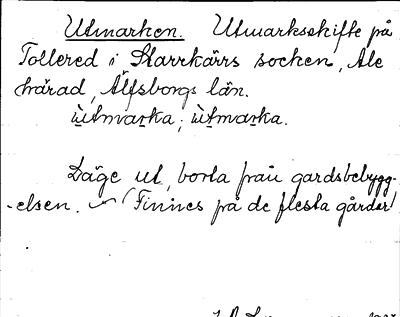 Utmarken. Utmarksskifte på
Tollered i Starrkärrs socken, Ale
härad, Älfsborgs län.
ùtmarka; ùtmarka.
Läge ut, borta från gardsbebygg-
-elsen. (Finnes på de flesta gårder)